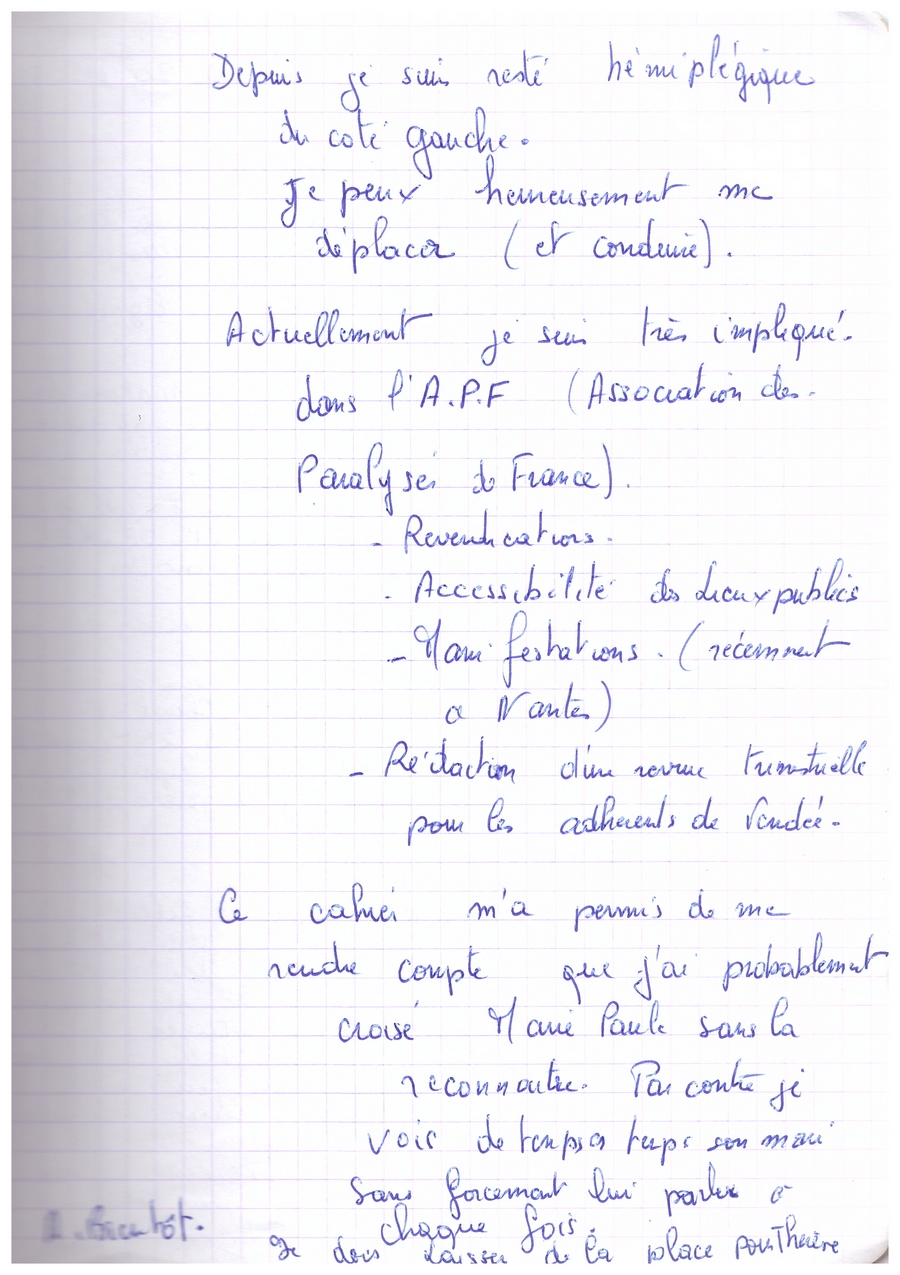 Depuis je suis resté hémiplégique
du coté gauche.
Je peux heureusement me
déplacer (et conduire).
Actuellement je suis très impliqué.
dans l'A.P.F (Association des.
Paralysés de France).
- Revendications.
- Accessibilité des Lieux publics
- Manifestations. (récemment
a Nantes)
- Rédaction d'une revue trimestrielle
pour les adherents de Vendée.
Ce cahier m'a permis de me
rendre compte que j'ai probablement
croisé Marie Paule sans la
reconnaitre. Par contre je
vois de temps en temps son mari
sans forcement lui parler a
chaque fois.
Je dois laisser de la place pour Thérèse
A. Bientôt.